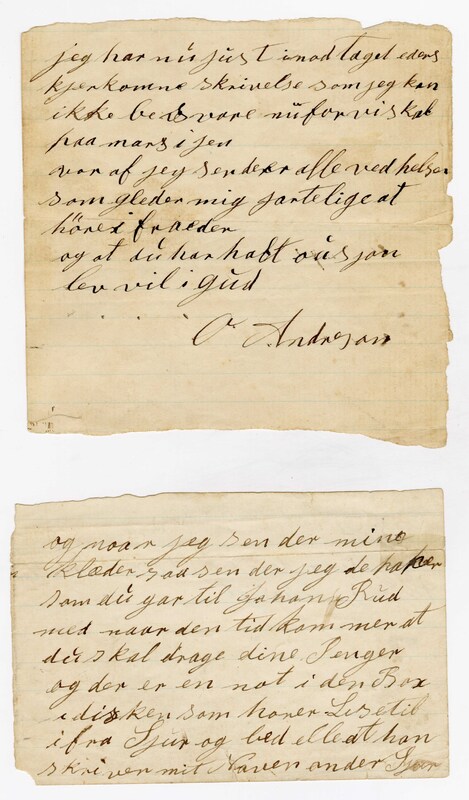 jeg har nu just inod taget eders
kjerkomne skrivelse som jeg kan
ikke besvare nu for vi skal
paa mars ijen
vor af jeg sender er alle ved helsen
som gleder mig jartelige at
höre ifra eder
og at du har halt ousjon
lev vil i gud
O Andreson
og naar jeg sender mine
klæder saa sender jeg de
som du gar til Johan Rud
med naar den tid kommer at
du skal drage dine Penger
og der er en not i den Box
i disken som horer Lise til
ifra Sjur og bed elle at han
skriver mit Naven onder Sjur